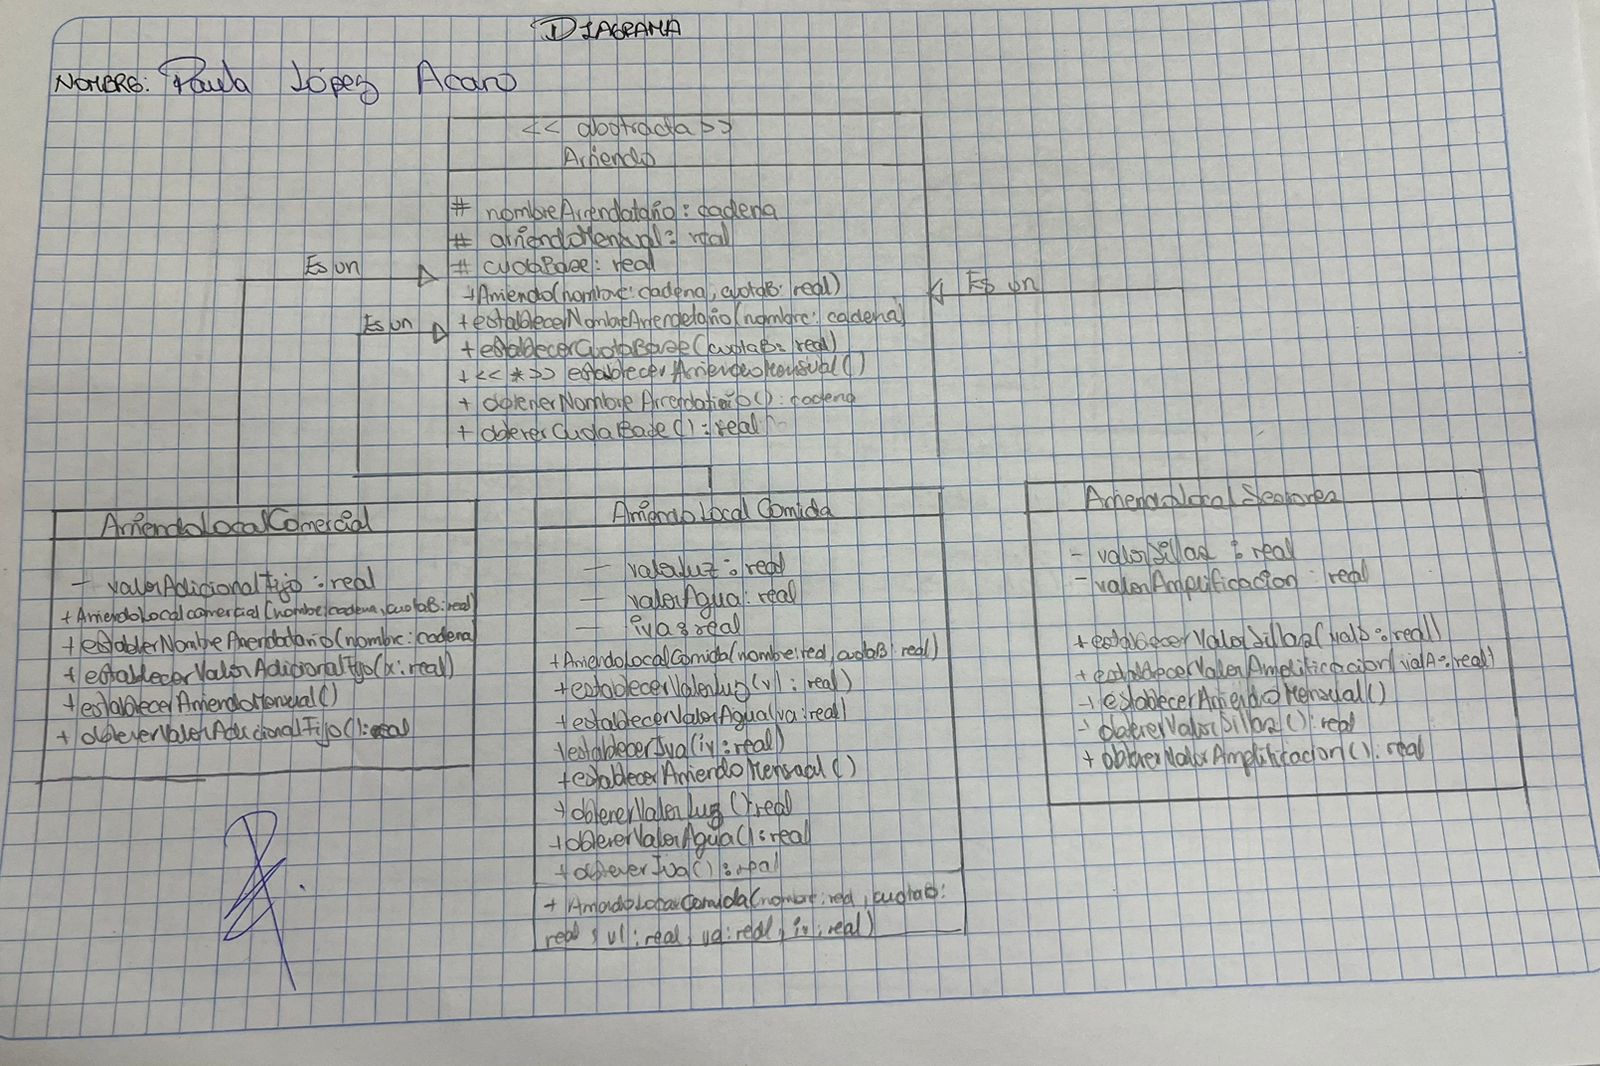 DIAGRAMA
NOMBRE: Paula López Acaro
<< abstracta >>
Arriendo
# nombreArrendatario : cadena
# arriendoMensual : real
# cuotaBase : real
+Arriendo(nombre: cadena, cuotaB: real)
+establecerNombreArrendetario(nombre: cadena)
+establecerCuotaBase(cuotaB: real)
+<< * >> establecerArriendoMensual()
+ obtenerNombreArrendatario() : cadena
+ obtenerCuotaBase() : real
Es un
Es un
Es un
ArriendoLocalComercial
- valorAdicionalFijo : real
+ArriendoLocalcomercial(nombre:cadena, cuotaB: real)
+establerNombreArrendatario(nombre: cadena)
+establecerValorAdicionalFijo(x: real)
+establecerArriendoMensual()
+ obtenerValorAdicionalFijo(): real
ArriendoLocalComida
- valorLuz : real
- valorAgua : real
- iva : real
+ArriendoLocalComida(nombre: red, cuotaB: real)
+establecerValorLuz(vl : real)
+establecerValorAgua(va : real)
+establecerIva(iv : real)
+establecerArriendoMensual()
+obtenerValorLuz() : real
+obtenerValorAgua() : real
+obtenerIva() : real
+ ArriendoLocalComida(nombre: red, cuotaB:
real, vl : real, va : real, iv : real)
ArriendoLocalSesiones
- valorSillas : real
- valorAmplificacion : real
+establecerValorSillas(valS : real)
+establecerValorAmplificacion(valA : real)
+ establecerArriendoMensual()
- obtenerValorSillas() : real
+ obtenerValorAmplificacion() : real